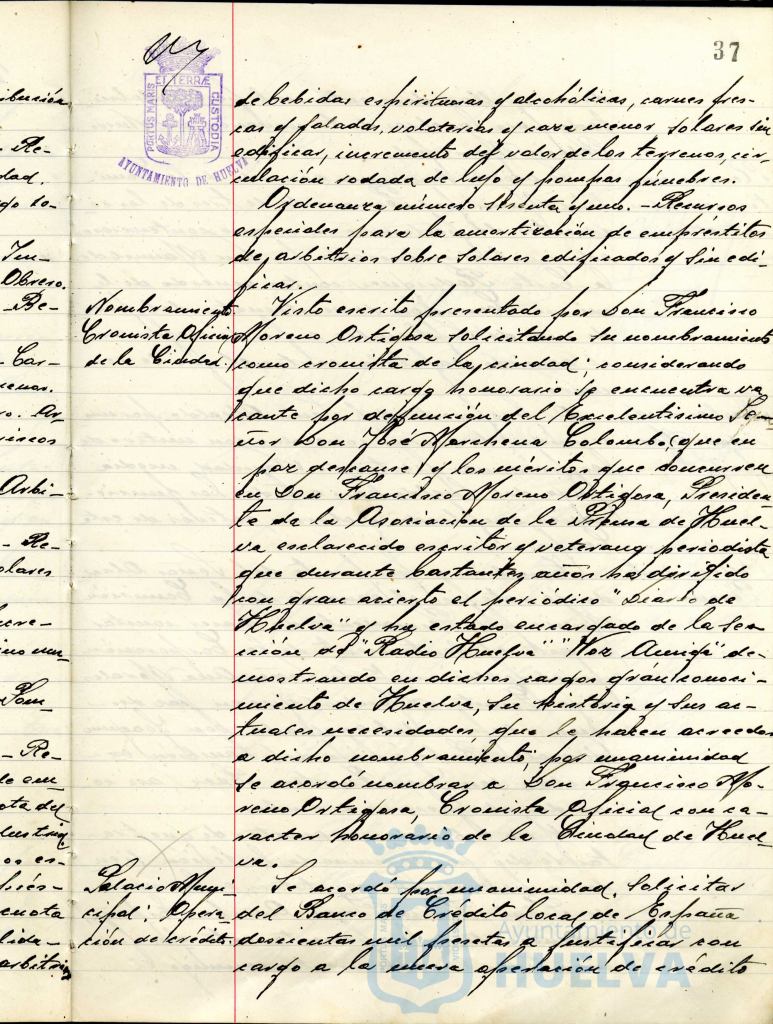 37
PORTUS MARIS ET TERRÆ CUSTODIA
AYUNTAMIENTO DE HUELVA
de bebidas espirituosas y alcohólicas, carnes fres-
cas y saladas, volaterias y caza menor, solares sin
edificar, incremento del valor de los terrenos, cir-
culación rodada de lujo y pompas fúnebres.
Ordenanza número treinta y uno. - Recursos
especiales para la amortización de empréstitos
de arbitrios sobre solares edificados y sin edi-
ficar.
Nombramiento
Cronista Oficial
de la Ciudad.
Visto escrito presentado por Don Francisco
Moreno Ortigosa solicitando su nombramiento
como cronista de la ciudad; considerando
que dicho cargo honorario se encuentra va
cante por defunción del Excelentísimo Se-
ñor Don José Marchena Colombo, que en
paz descanse, y los méritos que concurren
en Don Francisco Moreno Ortigosa, Presiden-
te de la Asociación de la Prensa de Huel-
va esclarecido escritor y veterano periodista
que durante bastantes años ha dirigido
con gran acierto el periódico "Diario de
Huelva" y ha estado encargado de la Sec-
ción de "Radio Huelva" "Voz Amiga" de-
mostrando en dichos cargos gran conoci-
miento de Huelva, su historia y sus ac-
tuales necesidades, que le hacen acreedor
a dicho nombramiento, por unanimidad
se acordó nombrar a Don Francisco Mo-
reno Ortigosa, Cronista Oficial con ca-
racter honorario de la Ciudad de Huel-
va.
Palacio Muni-
cipal; Opera
ción de crédito.
Se acordó por unanimidad, solicitar
del Banco de Crédito local de España
doscientas mil pesetas a justificar con
cargo a la nueva operación de crédito
Ayuntamiento de
HUELVA
ibución
- Re-
dad.
go to-
Im-
Obrero.
- Re-
- Car-
menor.
ro. Ar-
Arbi-
- Re-
olares
- Re-
ota del
cuota
lida-
arbitrios